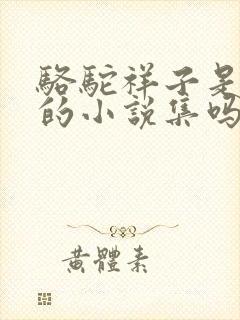 駱駝祥子是
的小說集嗎
黃體素